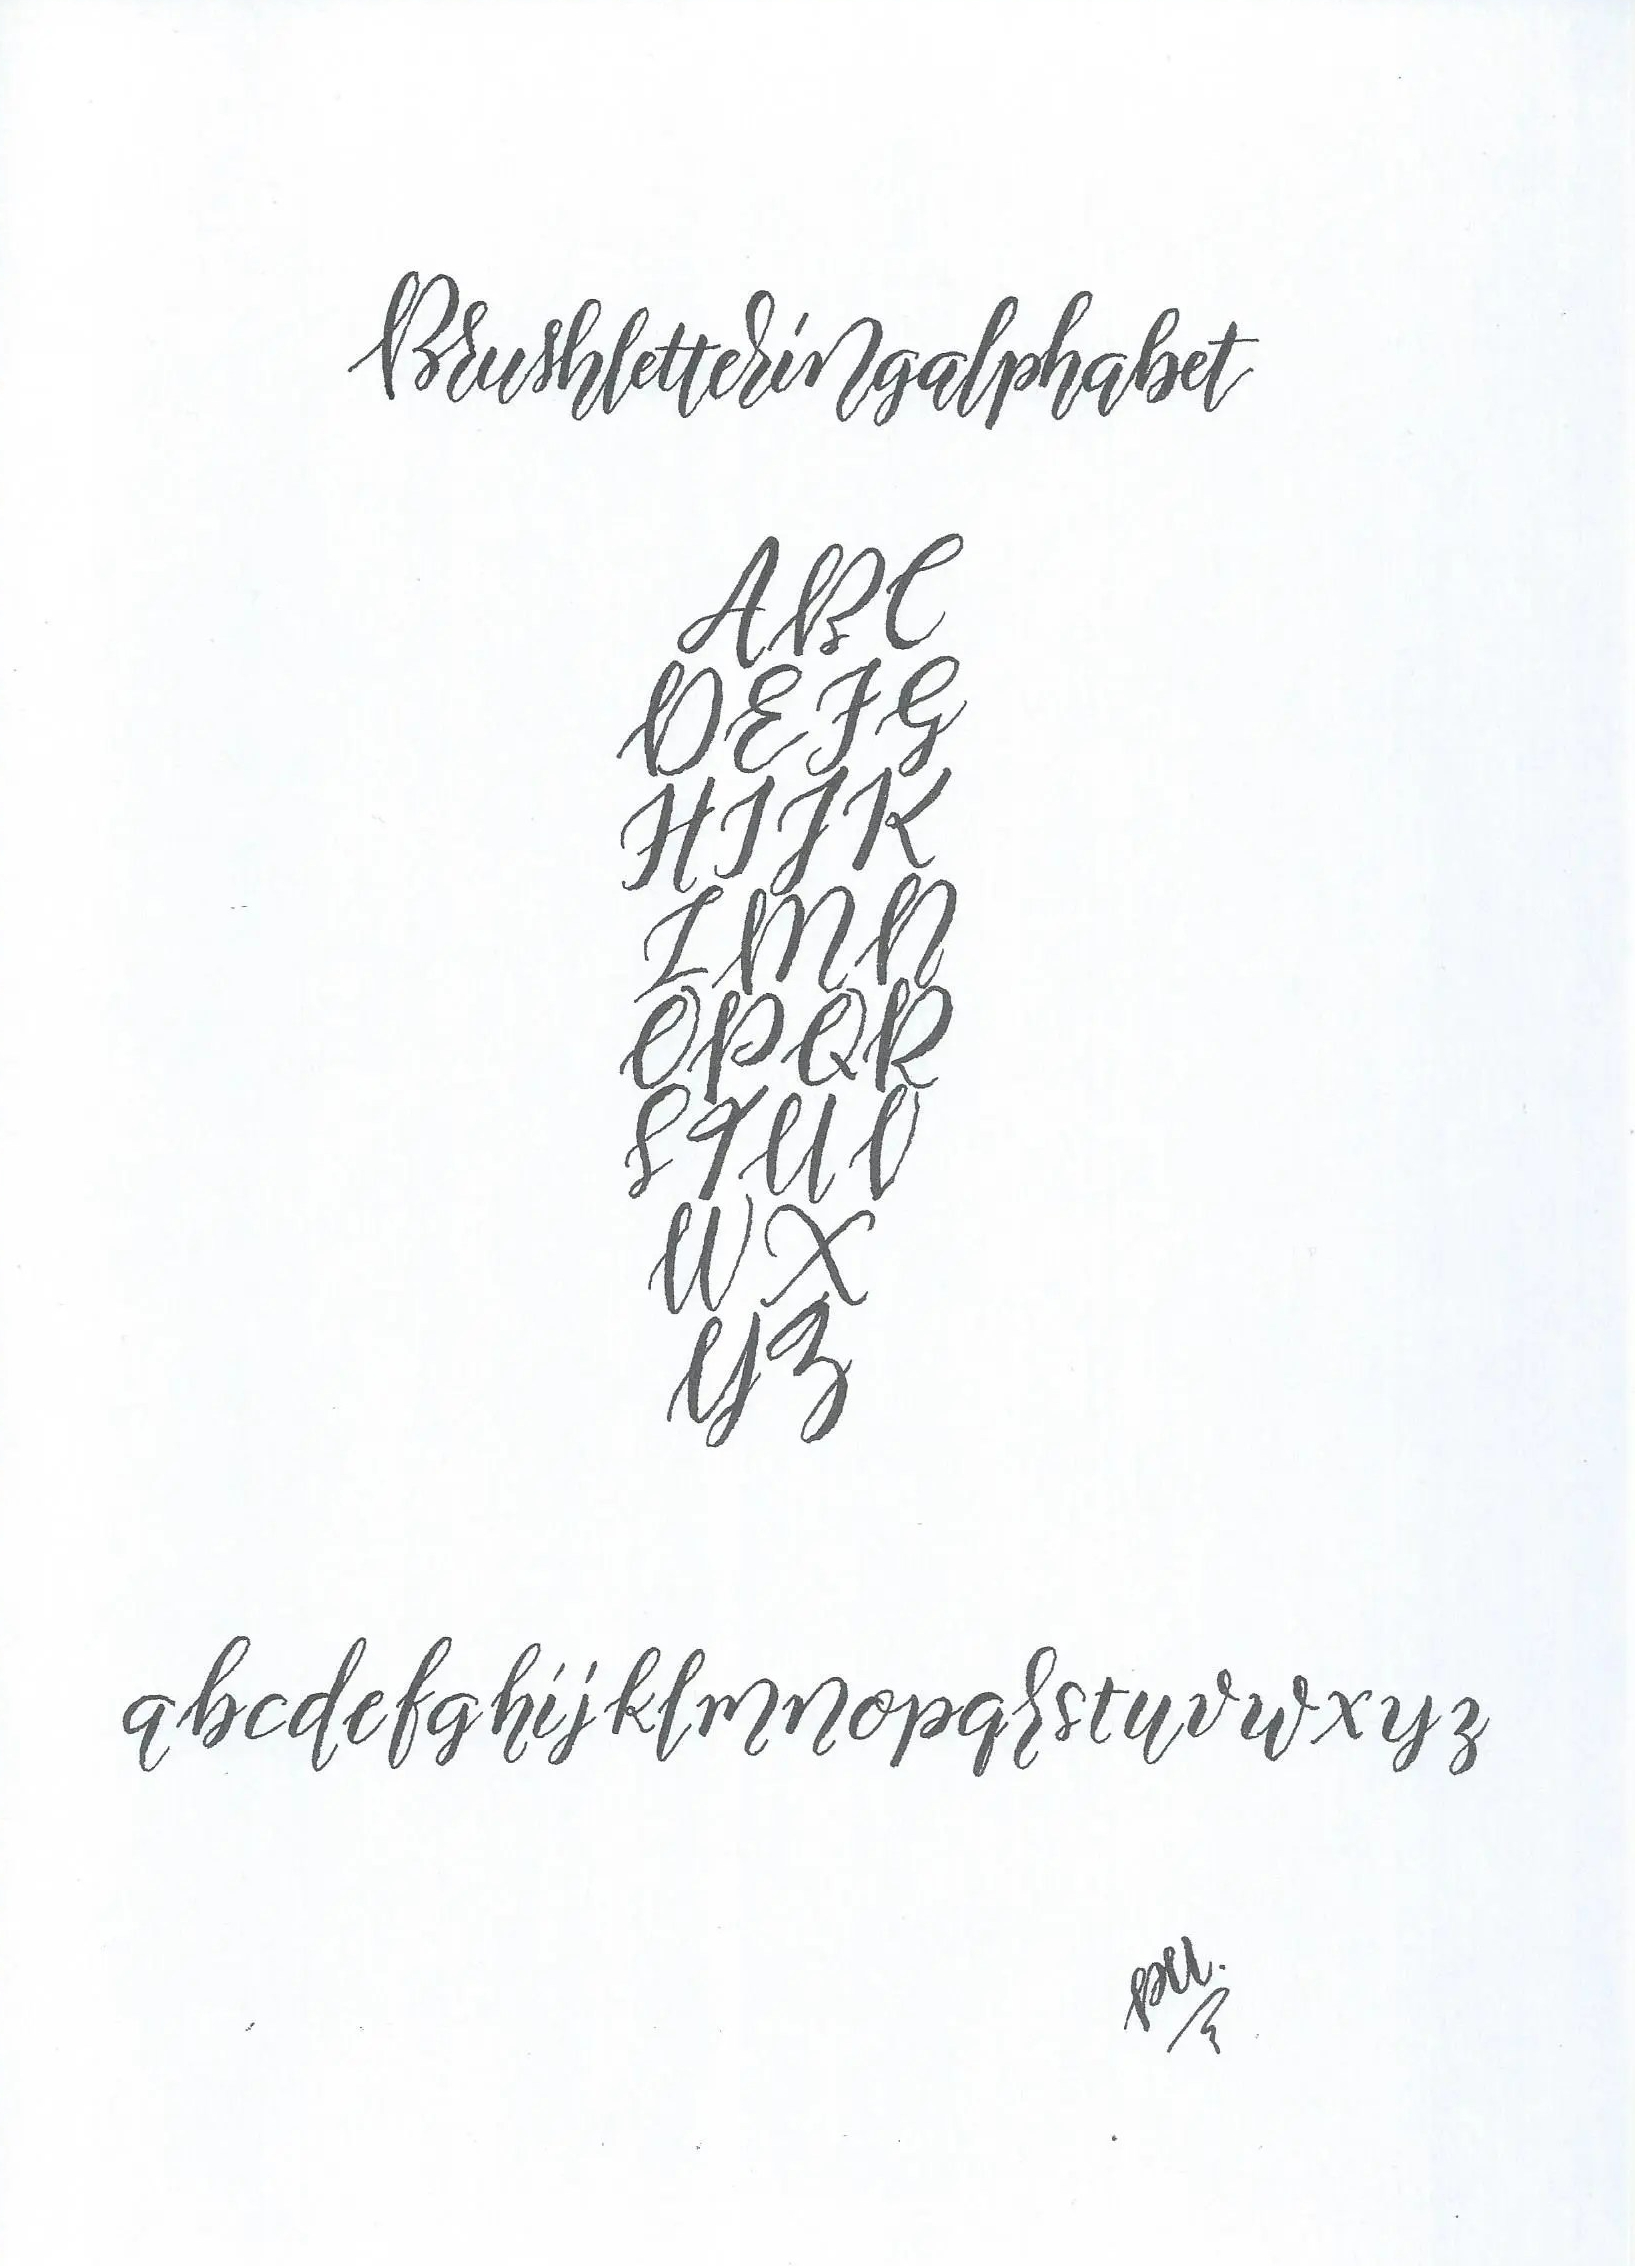 Brushletteringalphabet
A B C
D E F G
H I J K
L M N
O P Q R
S T U V
W X
Y Z
a b c d e f g h i j k l m n o p q r s t u v w x y z